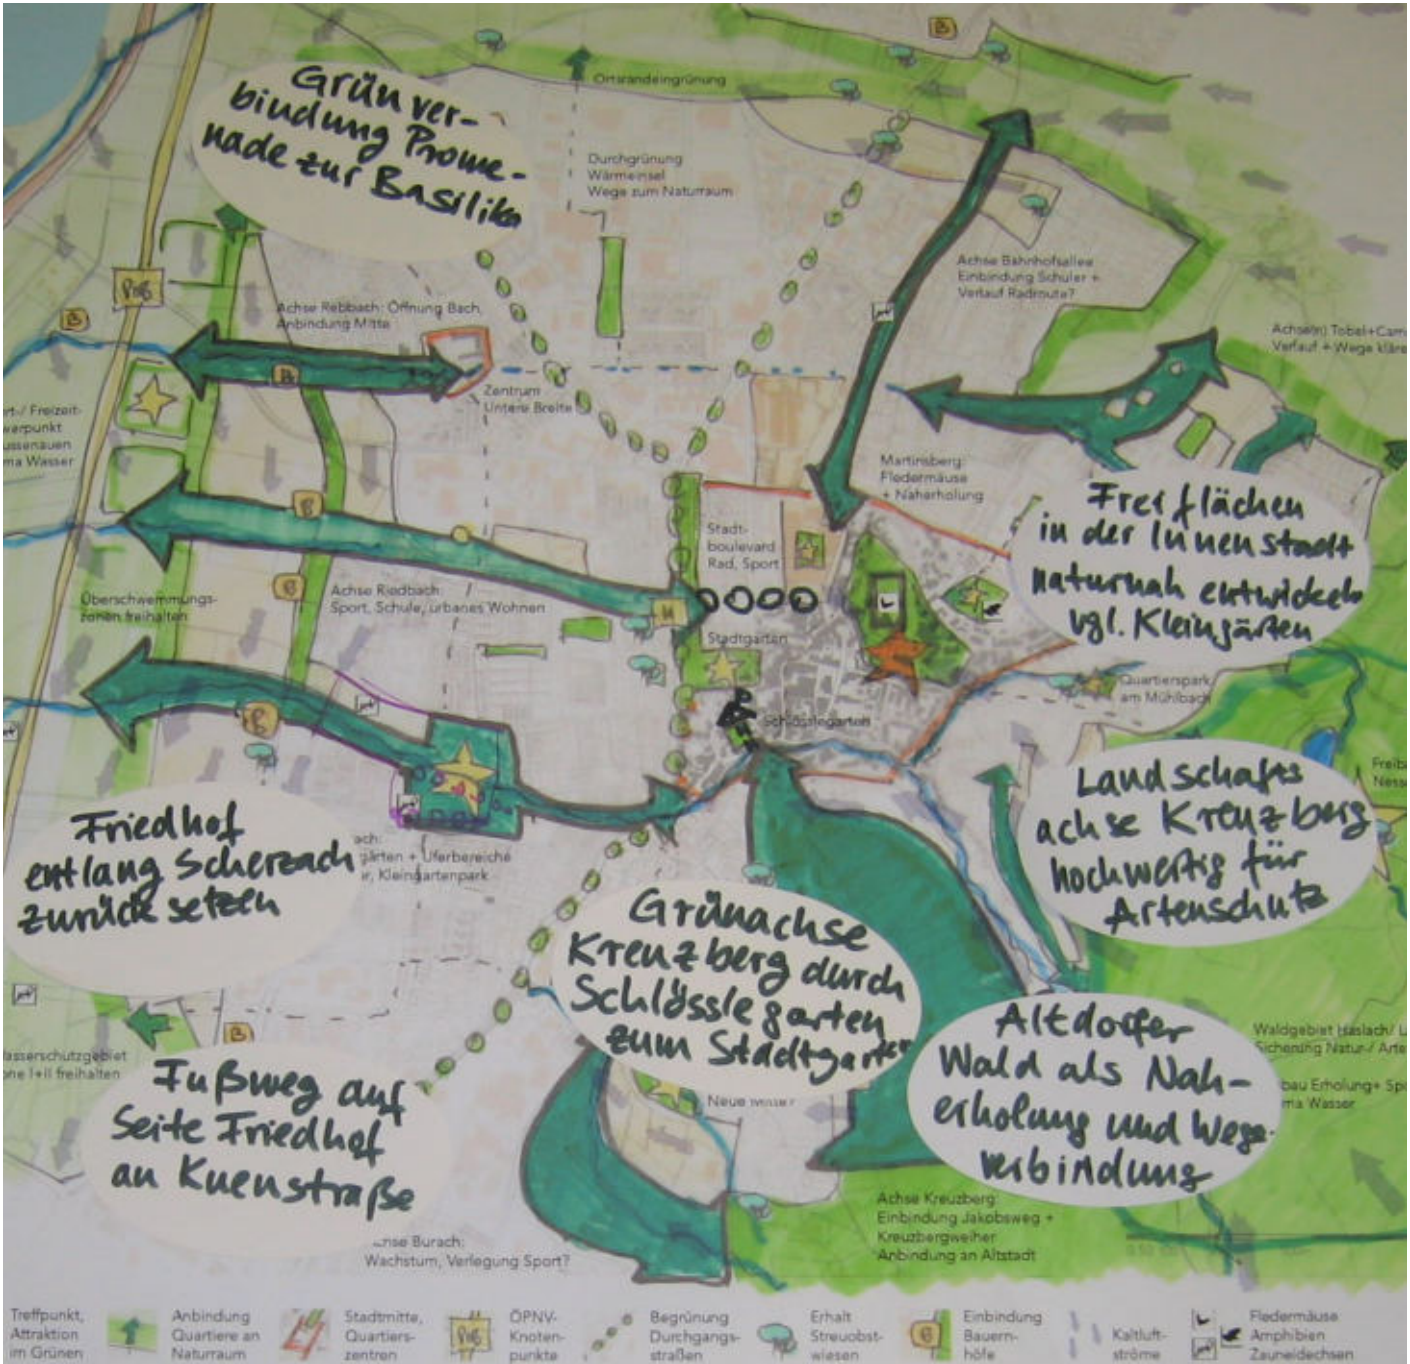 B
Ortsrandeingrünung
Grünver-
bindung Prome-
nade zur Basilika
Durchgrünung
Wärmeinsel
Wege zum Naturraum
Achse Bahnhofsallee
Einbindung Schüler +
Verlauf Radroute?
B
Achse Rebbach: Öffnung Bach,
Anbindung Mitte
Achse(n) Tobel+Cam
Verlauf + Wege kläre
B
Zentrum
Untere Breite
rt-/ Freizeit-
werpunkt
ussenauen
ma Wasser
Martinsberg:
Fledermäuse
+ Naherholung
Freiflächen
in der Innenstadt
naturnah entwickeln
vgl. Kleingärten
B
Stadt-
boulevard
Rad, Sport
Überschwemmungs-
zonen freihalten
B
Achse Riedbach:
Sport, Schule, urbanes Wohnen
Stadtgarten
Quartierspark
am Mühlbach
B
Schlösslegarten
Landschafts
achse Kreuzberg
hochwertig für
Artenschutz
Freib
Ness
Friedhof
entlang Scherzach
zurück setzen
ach:
gärten + Uferbereiche
r, Kleingartenpark
Grünachse
Kreuzberg durch
Schlössle garten
zum Stadtgarten
Altdorfer
Wald als Nah-
erholung und Wege-
verbindung
Waldgebiet Haslach/ L
Sicherung Natur-/ Arte
bau Erholung+ Spo
ma Wasser
B
asserschutzgebiet
one I+II freihalten
Fußweg auf
Seite Friedhof
an Kuenstraße
Neue
Achse Kreuzberg:
Einbindung Jakobsweg +
Kreuzbergweiher
Anbindung an Altstadt
hse Burach:
Wachstum, Verlegung Sport?
Treffpunkt,
Attraktion
im Grünen
Anbindung
Quartiere an
Naturraum
Stadtmitte,
Quartiers-
zentren
ÖPNV-
Knoten-
punkte
Begrünung
Durchgangs-
straßen
Erhalt
Streuobst-
wiesen
B
Einbindung
Bauern-
höfe
Kaltluft-
ströme
Fledermäuse
Amphibien
Zauneidechsen